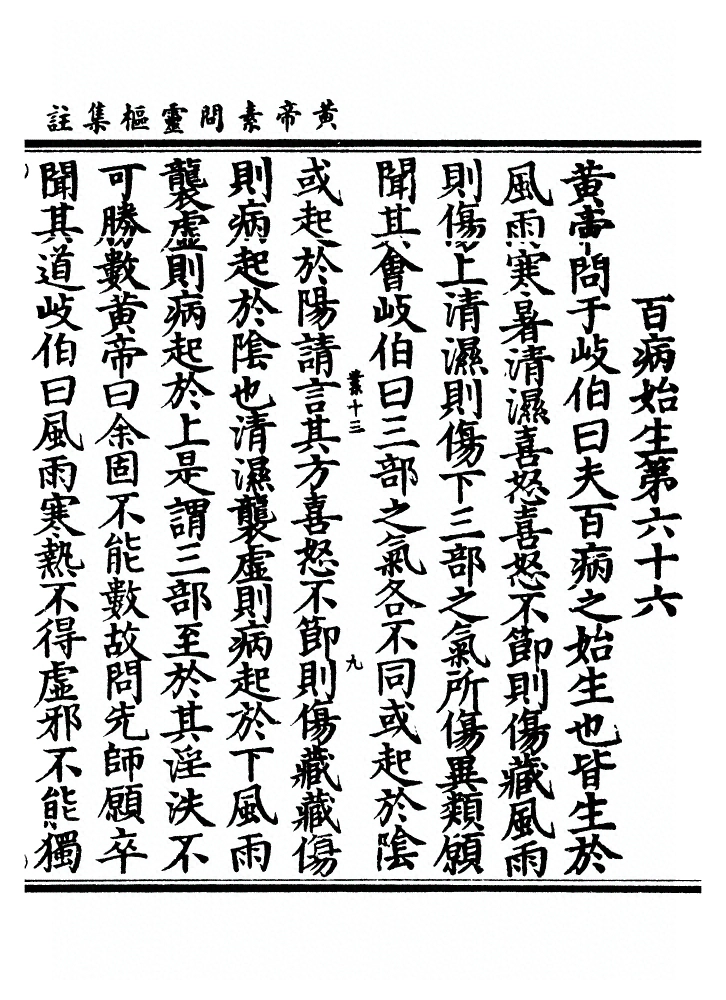 黃帝素問靈樞集註
百病始生第六十六
黃帝問于岐伯曰夫百病之始生也皆生於
風雨寒暑清濕喜怒喜怒不節則傷藏風雨
則傷上清濕則傷下三部之氣所傷異類願
聞其會岐伯曰三部之氣各不同或起於陰
叢十三
九
或起於陽請言其方喜怒不節則傷藏藏傷
則病起於陰也清濕襲虛則病起於下風雨
襲虛則病起於上是謂三部至於其淫泆不
可勝數黃帝曰余固不能數故問先師願卒
聞其道岐伯曰風雨寒熱不得虛邪不能獨